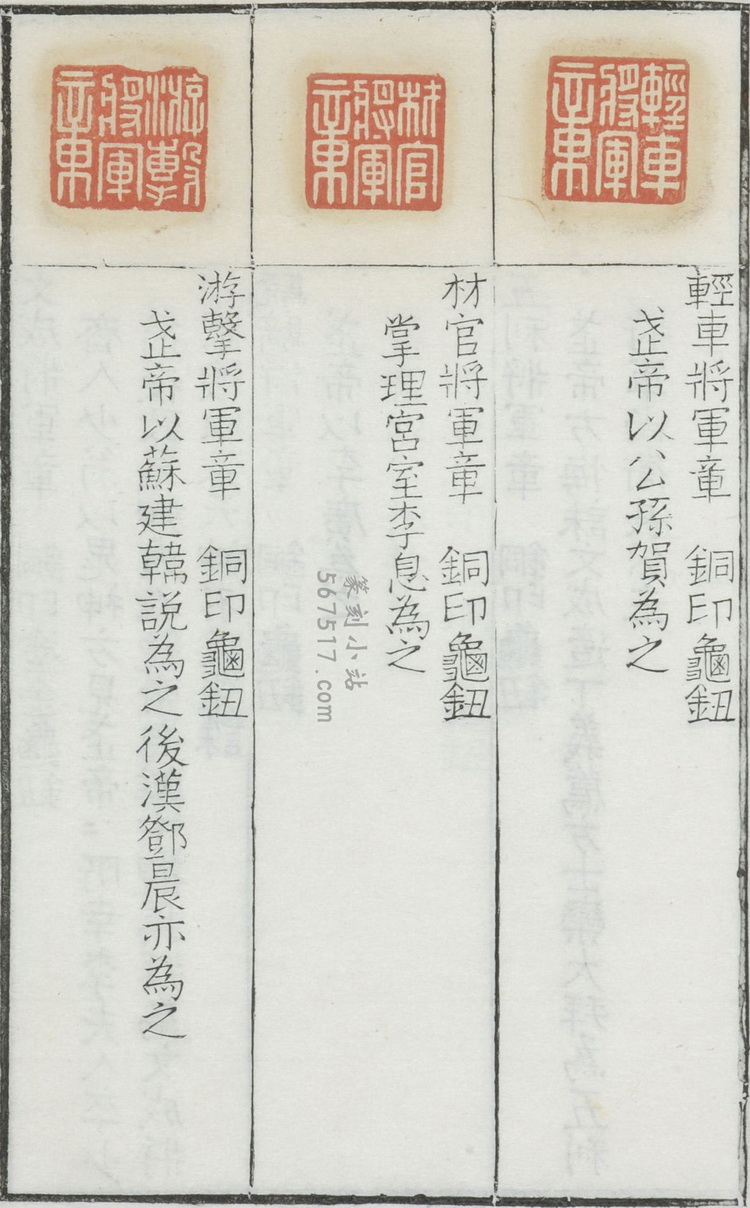 輕車將軍章
輕車將軍章　銅印龜鈕
武帝以公孫賀為之
材官將軍章
材官將軍章　銅印龜鈕
掌理宮室李息為之
游擊將軍章
游擊將軍章　銅印龜鈕
武帝以蘇建韓說為之後漢鄧晨亦為之
篆刻小站
567517.com